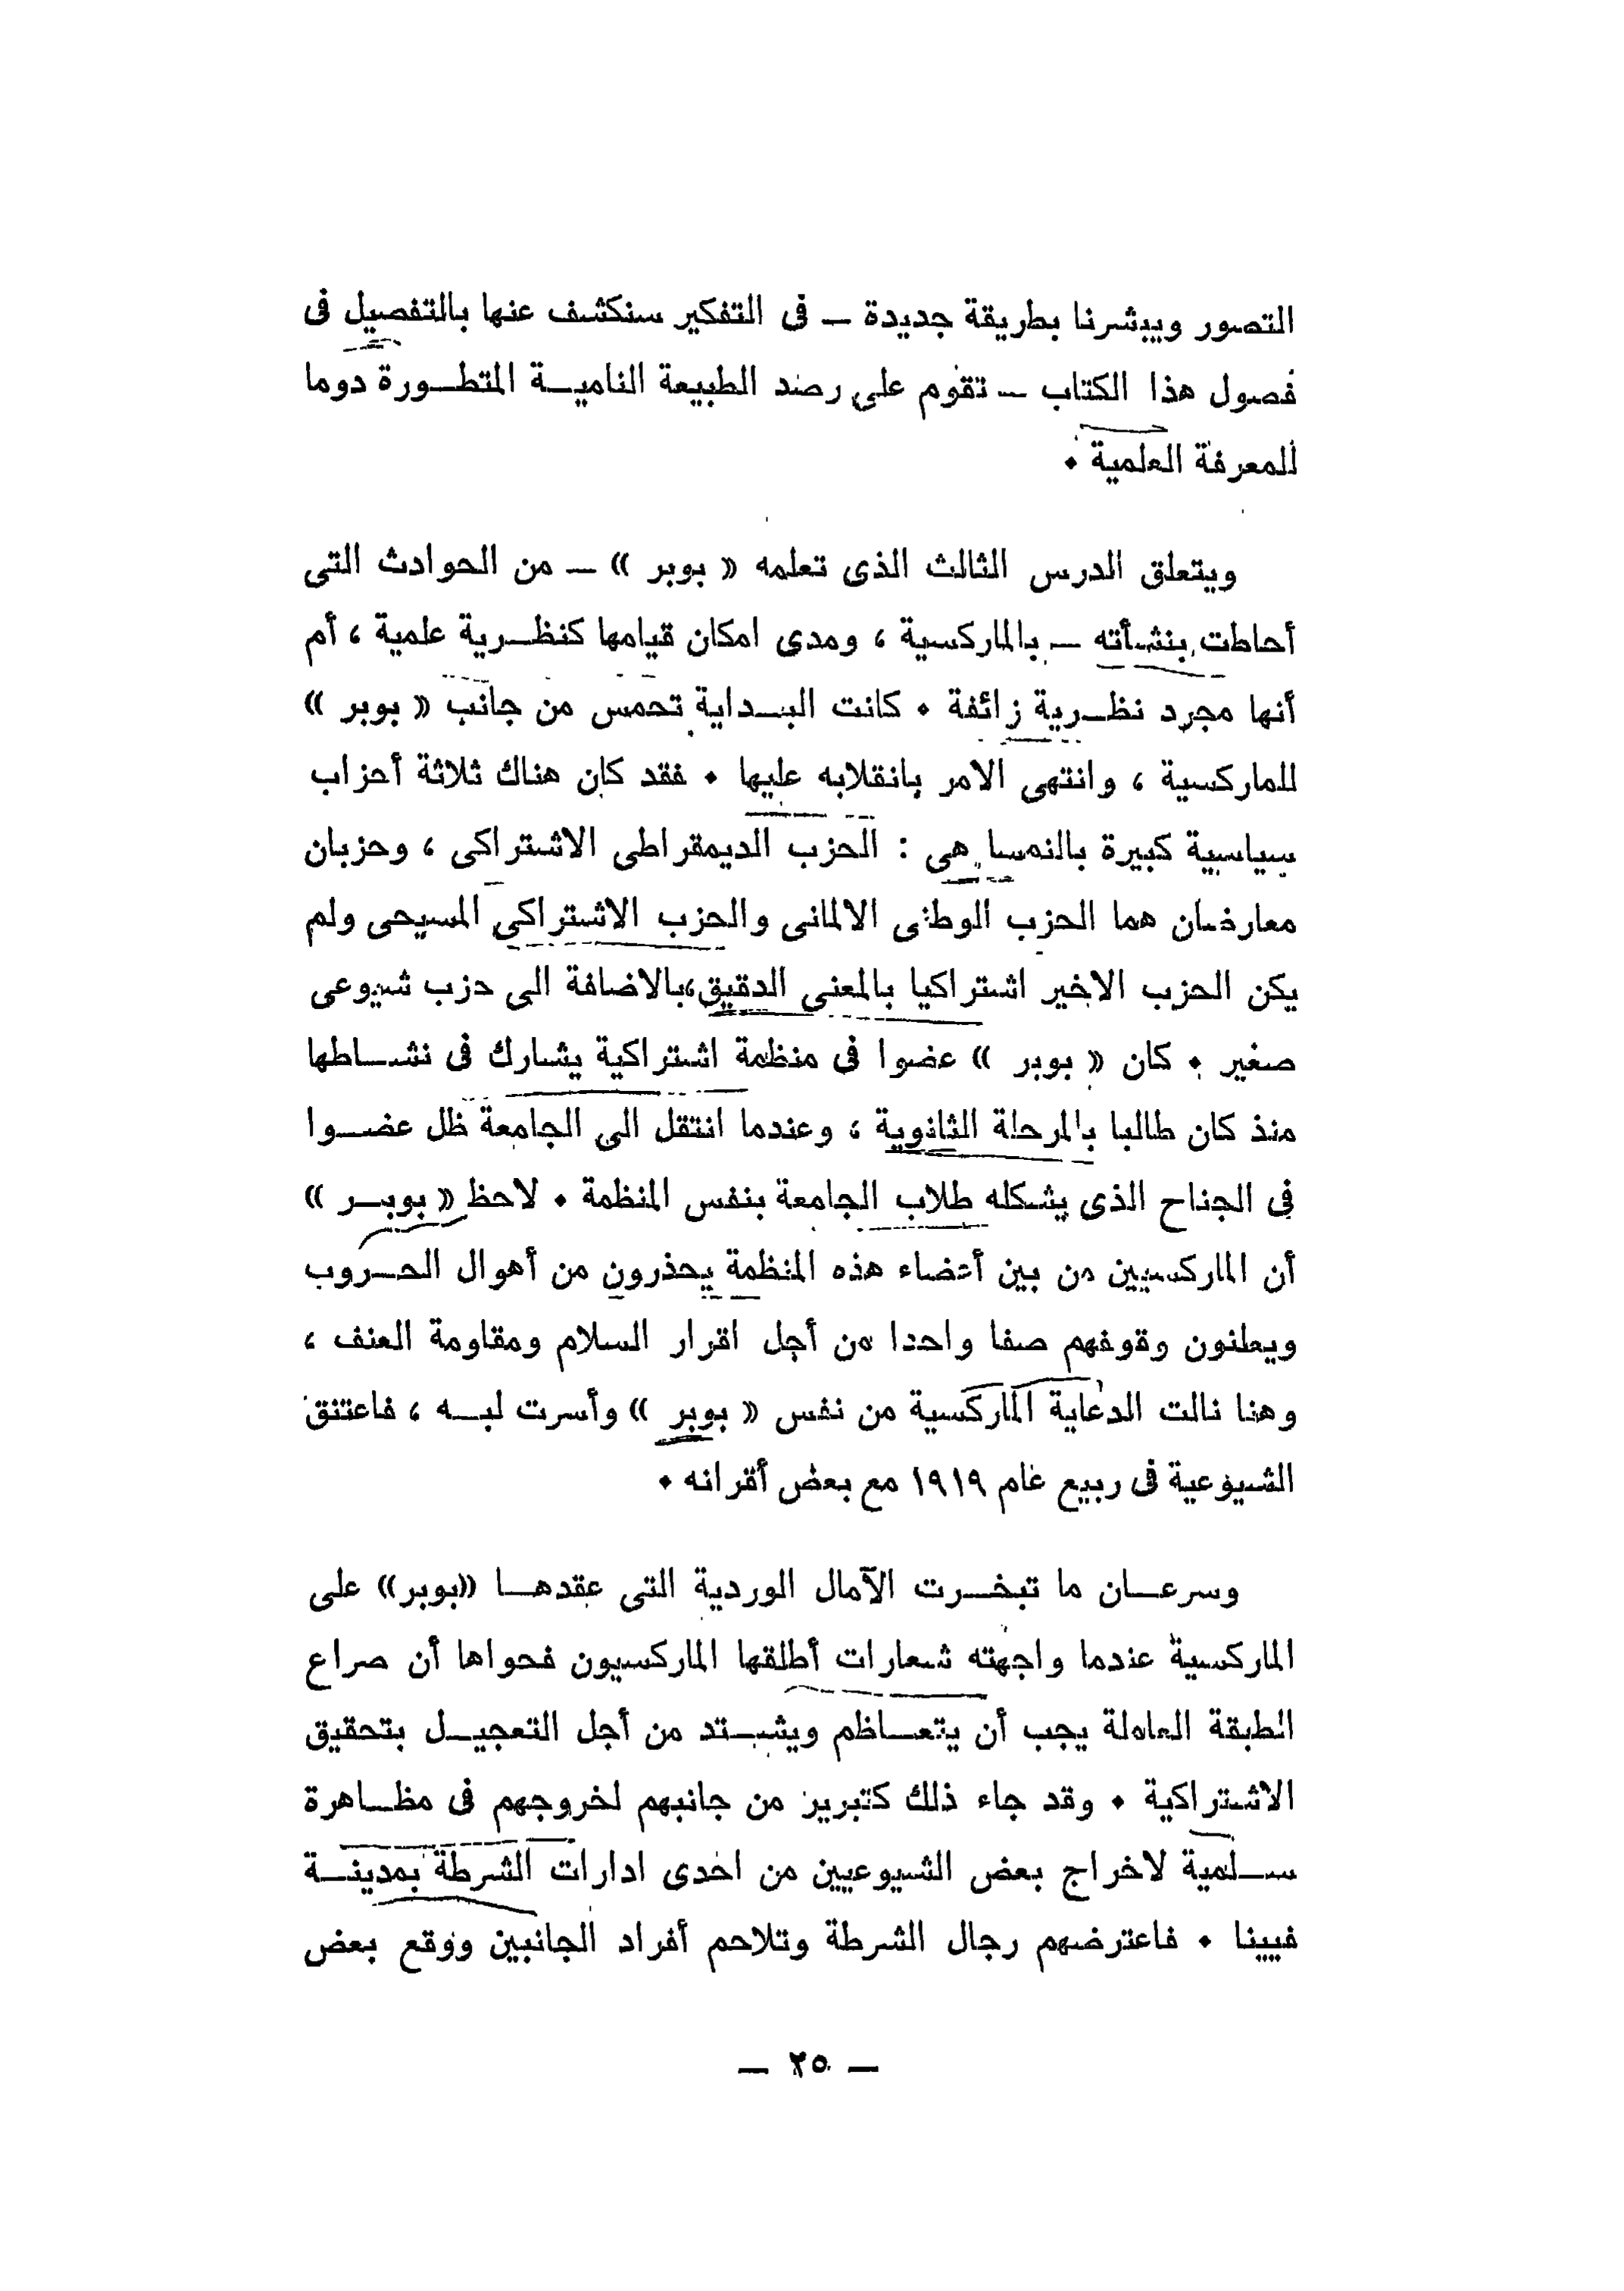 التصور ويبشرنا بطريقة جديدة ــ فى التفكير سنكشف عنها بالتفصيل فى
فصول هذا الكتاب ــ تقوم على رصد الطبيعة الناميـــة المتطـــورة دوما
للمعرفة العلمية ٠
ويتعلق الدرس الثالث الذى تعلمه « بوبر » ــ من الحوادث التى
أحاطت بنشأته ــ بالماركسية ، ومدى امكان قيامها كنظـــرية علمية ، أم
أنها مجرد نظـــرية زائفة ٠ كانت البـــداية تحمس من جانب « بوبر »
للماركسية ، وانتهى الامر بانقلابه عليها ٠ فقد كان هناك ثلاثة أحزاب
سياسية كبيرة بالنمسا هى : الحزب الديمقراطى الاشتراكى ، وحزبان
معارضان هما الحزب الوطنى الالمانى والحزب الاشتراكى المسيحى ولم
يكن الحزب الاخير اشتراكيا بالمعنى الدقيق،بالاضافة الى حزب شيوعى
صغير ٠ كان « بوبر » عضوا فى منظمة اشتراكية يشارك فى نشـــاطها
منذ كان طالبا بالمرحلة الثانوية ، وعندما انتقل الى الجامعة ظل عضـــوا
فى الجناح الذى يشكله طلاب الجامعة بنفس المنظمة ٠ لاحظ « بوبـــر »
أن الماركسيين من بين أعضاء هذه المنظمة يحذرون من أهوال الحـــروب
ويعلنون وقوفهم صفا واحدا من أجل اقرار السلام ومقاومة العنف ،
وهنا نالت الدعاية الماركسية من نفس « بوبر » وأسرت لبـــه ، فاعتنق
الشيوعية فى ربيع عام ١٩١٩ مع بعض أقرانه ٠
وسرعـــان ما تبخـــرت الآمال الوردية التى عقدهـــا «بوبر» على
الماركسية عندما واجهته شعارات أطلقها الماركسيون فحواها أن صراع
الطبقة العاملة يجب أن يتعـــاظم ويشـــتد من أجل التعجيـــل بتحقيق
الاشتراكية ٠ وقد جاء ذلك كتبرير من جانبهم لخروجهم فى مظـــاهرة
ســـلمية لاخراج بعض الشيوعيين من احدى ادارات الشرطة بمدينـــة
فيينا ٠ فاعترضهم رجال الشرطة وتلاحم أفراد الجانبين ووقع بعض
ــ ٢٥ ــ